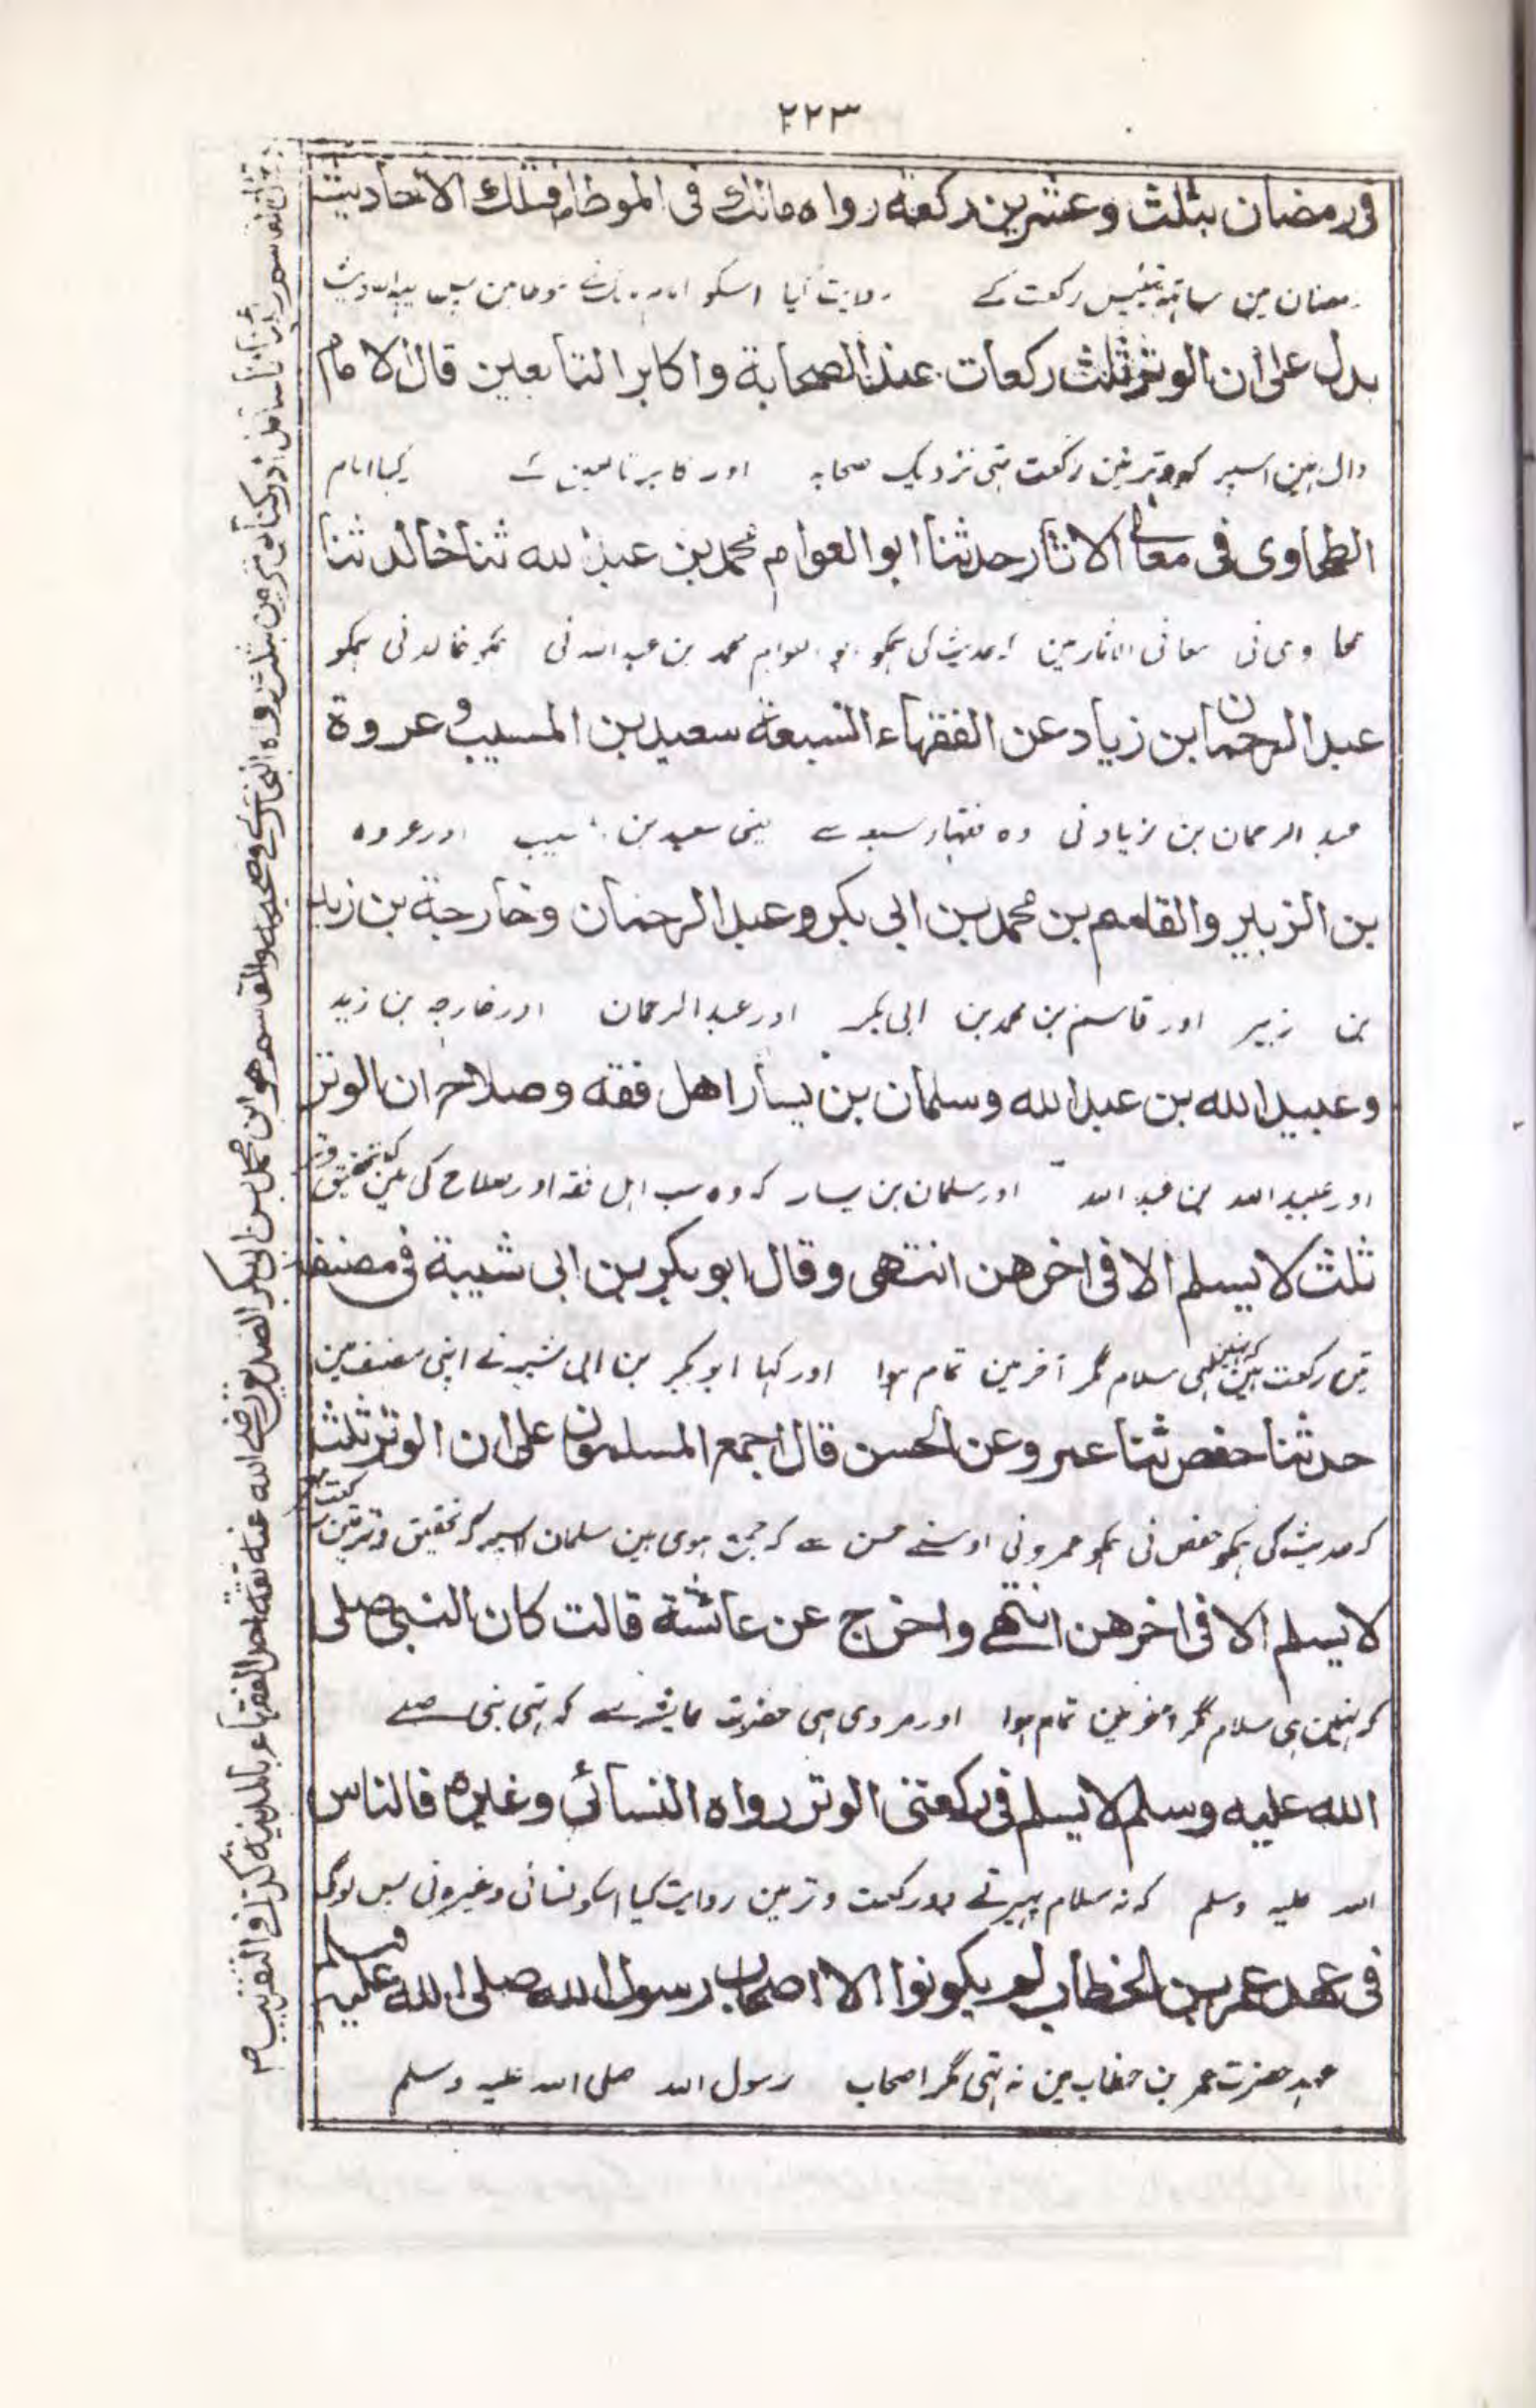 ٢٢٣
فی رمضان بثلث وعشرین رکعة رواه مالك فی الموطا فتلك الاحادیث
رمضان مین ساتھ تئیس رکعت کے روایت کیا اسکو امام مالک نے موطا مین پس یہ احادیث
یدل علی ان الوتر ثلث رکعات عند الصحابة واکابر التابعین قال الامام
دال ہین اسپر کہ وتر تین رکعت تہی نزدیک صحابہ اور کابر تابعین کے کہا امام
الطحاوی فی معانی الاثار حدثنا ابو العوام محمد بن عبد الله ثنا خالد ثنا
طحاوی نی معانی الاثار مین حدیث کی ہمکو ابو العوام محمد بن عبد الله نی ہمکو خالد نی ہمکو
عبد الرحمان ابن زیاد عن الفقهاء السبعة سعید بن المسیب وعروة
عبد الرحمان بن زیاد نی وہ فقہاء سبعہ سے یعنی سعید بن مسیب اور عروہ
بن الزبیر والقاسم بن محمد بن ابی بکر وعبد الرحمان وخارجة بن زید
بن زبیر اور قاسم بن محمد بن ابی بکر اور عبد الرحمان اور خارجہ بن زید
وعبید الله بن عبد الله وسلمان بن یسار اهل فقه وصلاح ان الوتر
اور عبید الله بن عبد الله اور سلمان بن یسار کہ وہ سب اہل فقہ اور صلاح کی ہین کہ تحقیق وتر
ثلث لا یسلم الا فی اخرهن انتهی وقال ابو بکر بن ابی شیبة فی مصنفه
تین رکعت ہین کہ نہین ہی سلام مگر آخر مین تمام ہوا اور کہا ابو بکر بن ابی شیبہ نے اپنی مصنف مین
حدثنا حفص ثنا عمرو عن الحسن قال اجمع المسلمون علی ان الوتر ثلث
کہ حدیث کی ہمکو حفص نی ہمکو عمرو نی اوسنے حسن سے کہ جمع ہوی ہین سلمان اسپر کہ تحقیق وتر تین رکعت ہے
لا یسلم الا فی اخرهن انتهے واخرج عن عائشة قالت کان النبی صلی
کہ نہین ہی سلام مگر اخر مین تمام ہوا اور مروی ہی حضرت عایشہ سے کہ تہی نبی صلے
الله علیه وسلم لا یسلم فی رکعتی الوتر رواه النسائی وغیره فالناس
الله علیہ وسلم کہ نہ سلام پہیرتے دو رکعت وتر مین روایت کیا اسکو نسائی وغیرہ نی پس لوگ
فی عهد عمر بن الخطاب لم یکونوا الا اصحاب رسول الله صلی الله علیه وسلم
عہد حضرت عمر بن خطاب مین نہ تہی مگر اصحاب رسول الله صلی الله علیہ وسلم
والقاسم هو ابن محمد بن ابی بکر الصدیق رضی الله عنه ثقة احد الفقهاء بالمدینة کذا فی التقریب